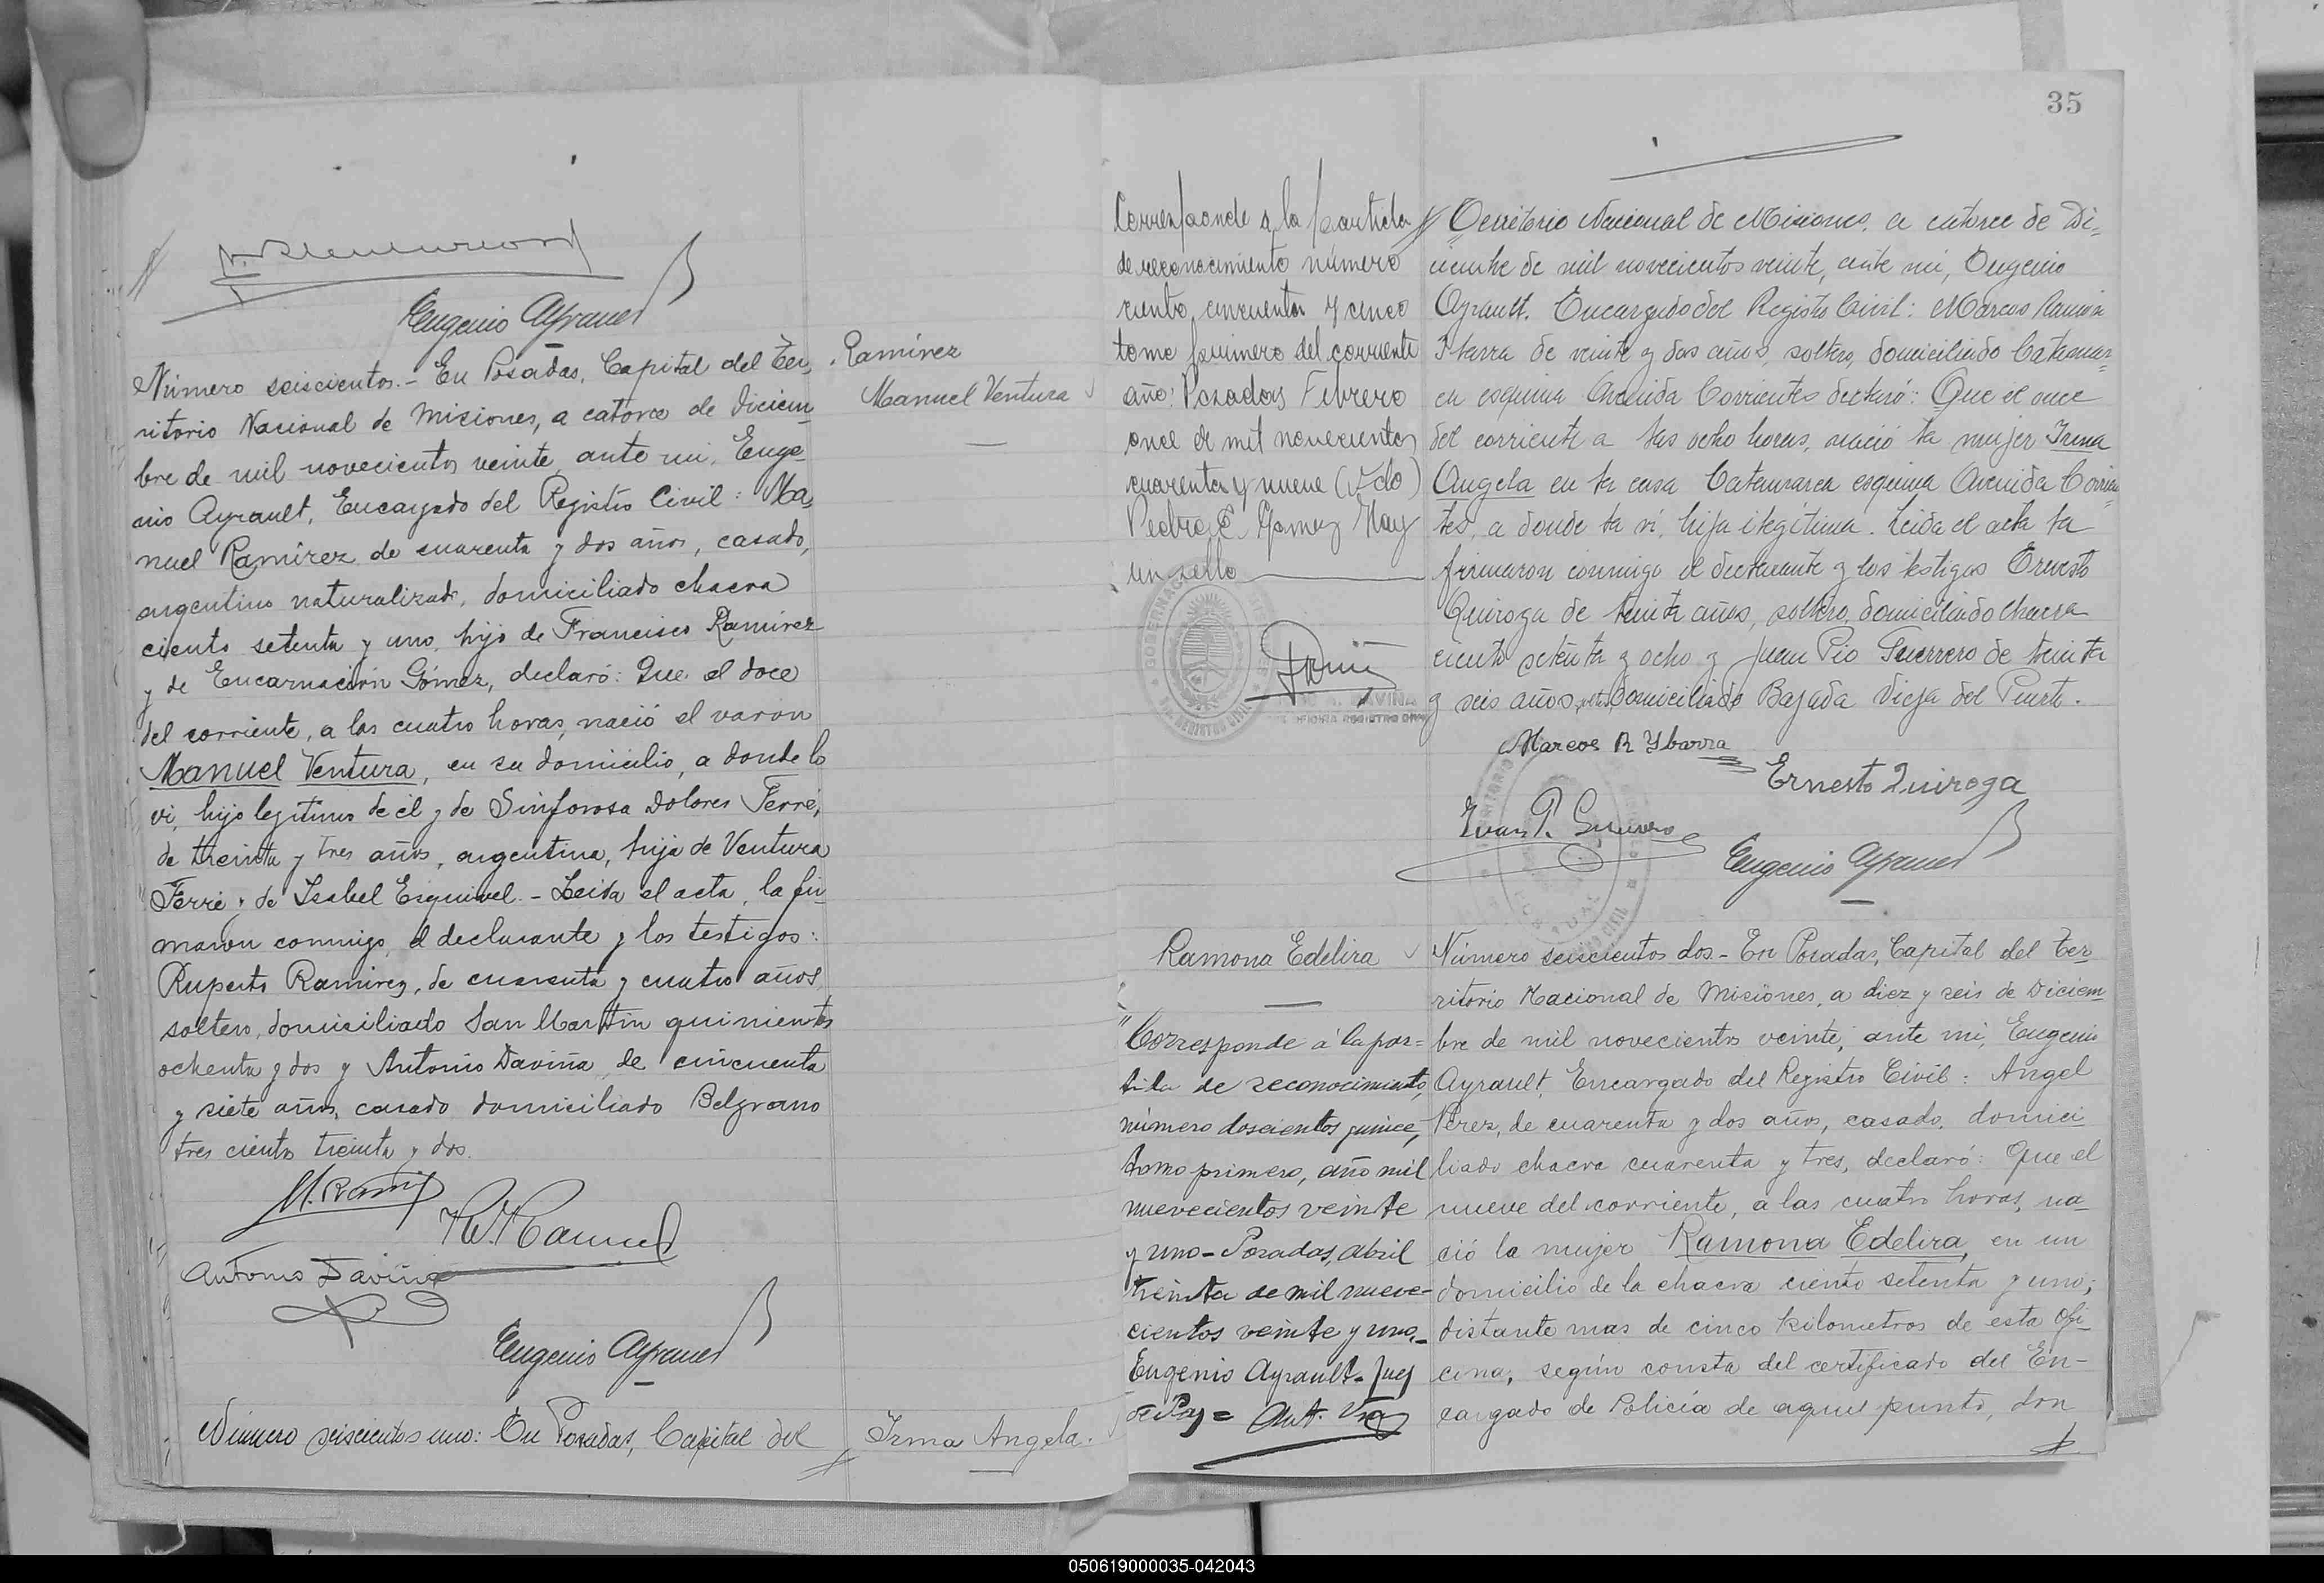 Eugenio Ayrault
Número seiscientos.- En Posadas, Capital del Ter-
ritorio Nacional de Misiones, a catorce de Diciem-
bre de mil novecientos veinte, ante mi, Euge-
nio Ayrault, Encargado del Registro Civil: Ma-
nuel Ramírez de cuarenta y dos años, casado,
argentino naturalizado, domiciliado chacra
ciento setenta y uno, hijo de Francisco Ramirez
y de Encarnación Gómez, declaró: Que el doce
del corriente, a las cuatro horas, nació el varon
Manuel Ventura, en su domicilio, a donde lo
vi, hijo legitimo de él y de Sinforosa Dolores Ferré,
de treinta y tres años, argentina, hija de Ventura
Ferré y de Isabel Esquivel.- Leida el acta, la fir-
maron conmigo, el declarante y los testigos:
Ruperto Ramirez, de cuarenta y cuatro años,
soltero, domiciliado San Martin quinientos
ochenta y dos y Antonio Daviña, de cincuenta
y siete años, casado domiciliado Belgrano
tres ciento treinta y dos.
Antonio Daviña
Eugenio Ayrault
Número seiscientos uno: En Posadas, Capital del
Ramírez
Manuel Ventura
Irma Angela.
35
Corresponde a la partida
de reconocimiento número
ciento cincuenta y cinco
tomo primero del corriente
año: Posadas Febrero
once de mil novecientos
cuarenta y nueve (Fdo)
Pedro E. Gomez Hay
un sello
Territorio Nacional de Misiones, a catorce de Di-
ciembre de mil novecientos veinte, ante mi, Eugenio
Ayrault, Encargado del Registro Civil: Marcos Ramón
Ibarra de veinte y dos años, soltero, domiciliado Catamar-
ca esquina Avenida Corrientes declaró: Que el once
del corriente a las ocho horas, nació la mujer Irma
Angela en la casa Catamarca esquina Avenida Corrien-
tes, a donde la vi, hija ilegítima. Leida el acta la
firmaron conmigo el declarante y los testigos Ernesto
Quiroga de treinta años, soltero, domiciliado chacra
ciento setenta y ocho y Juan Pio Guerrero de treinta
y seis años, domiciliado Bajada Vieja del Puerto.
Marcos R Ybarra
Ernesto Quiroga
Juan P. Guerrero
Eugenio Ayrault
Ramona Edelira
Corresponde á la par=
tida de reconocimiento,
número doscientos quince,
tomo primero, año mil
nuevecientos veinte
y uno- Posadas, abril
treinta de mil nueve-
cientos veinte y uno.-
Eugenio Ayrault- Juez
de Paz=
Número seiscientos dos- En Posadas, Capital del Ter
ritorio Nacional de Misiones, a diez y seis de Diciem
bre de mil novecientos veinte, ante mi, Eugenio
Ayrault, Encargado del Registro Civil: Angel
Perez, de cuarenta y dos años, casado, domici
liado chacra cuarenta y tres, declaró: Que el
nueve del corriente, a las cuatro horas, na-
ció la mujer Ramona Edelira, en un
domicilio de la chacra ciento setenta y uno;
distante mas de cinco kilometros de esta ofi-
cina, según consta del certificado del En-
cargado de Policía de aquel punto, don
050619000035-042043